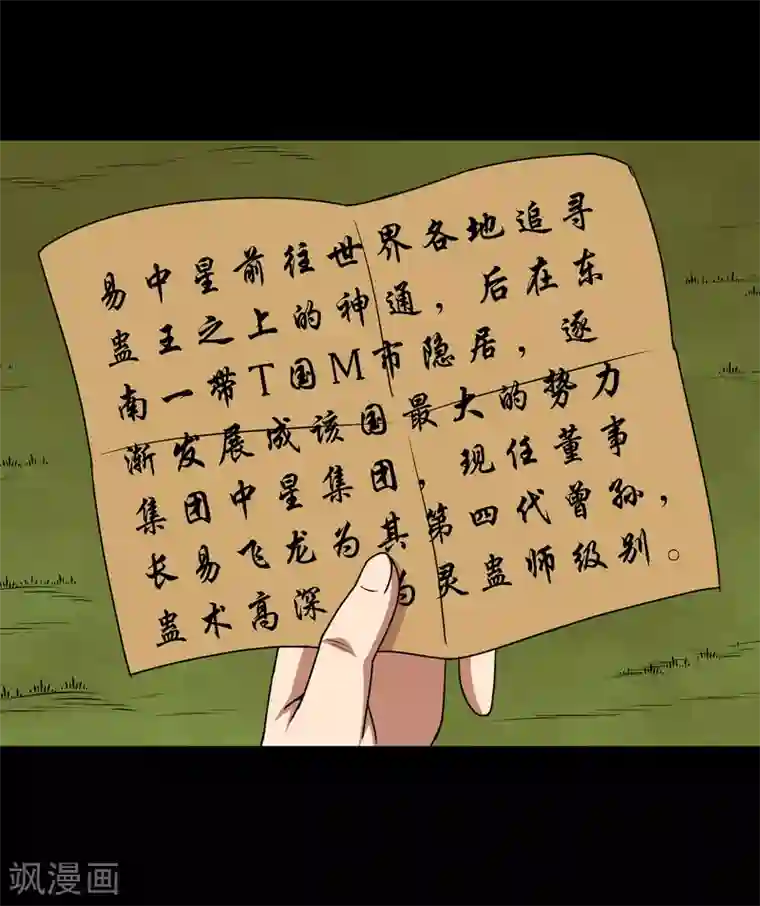 易中星前往世界各地追寻
蛊王之上的神通，后在东
南一带T国M市隐居，逐
渐发展成该国最大的势力
集团中星集团，现任董事
长易飞龙为其第四代曾孙，
蛊术高深 为灵蛊师级别。
飒漫画